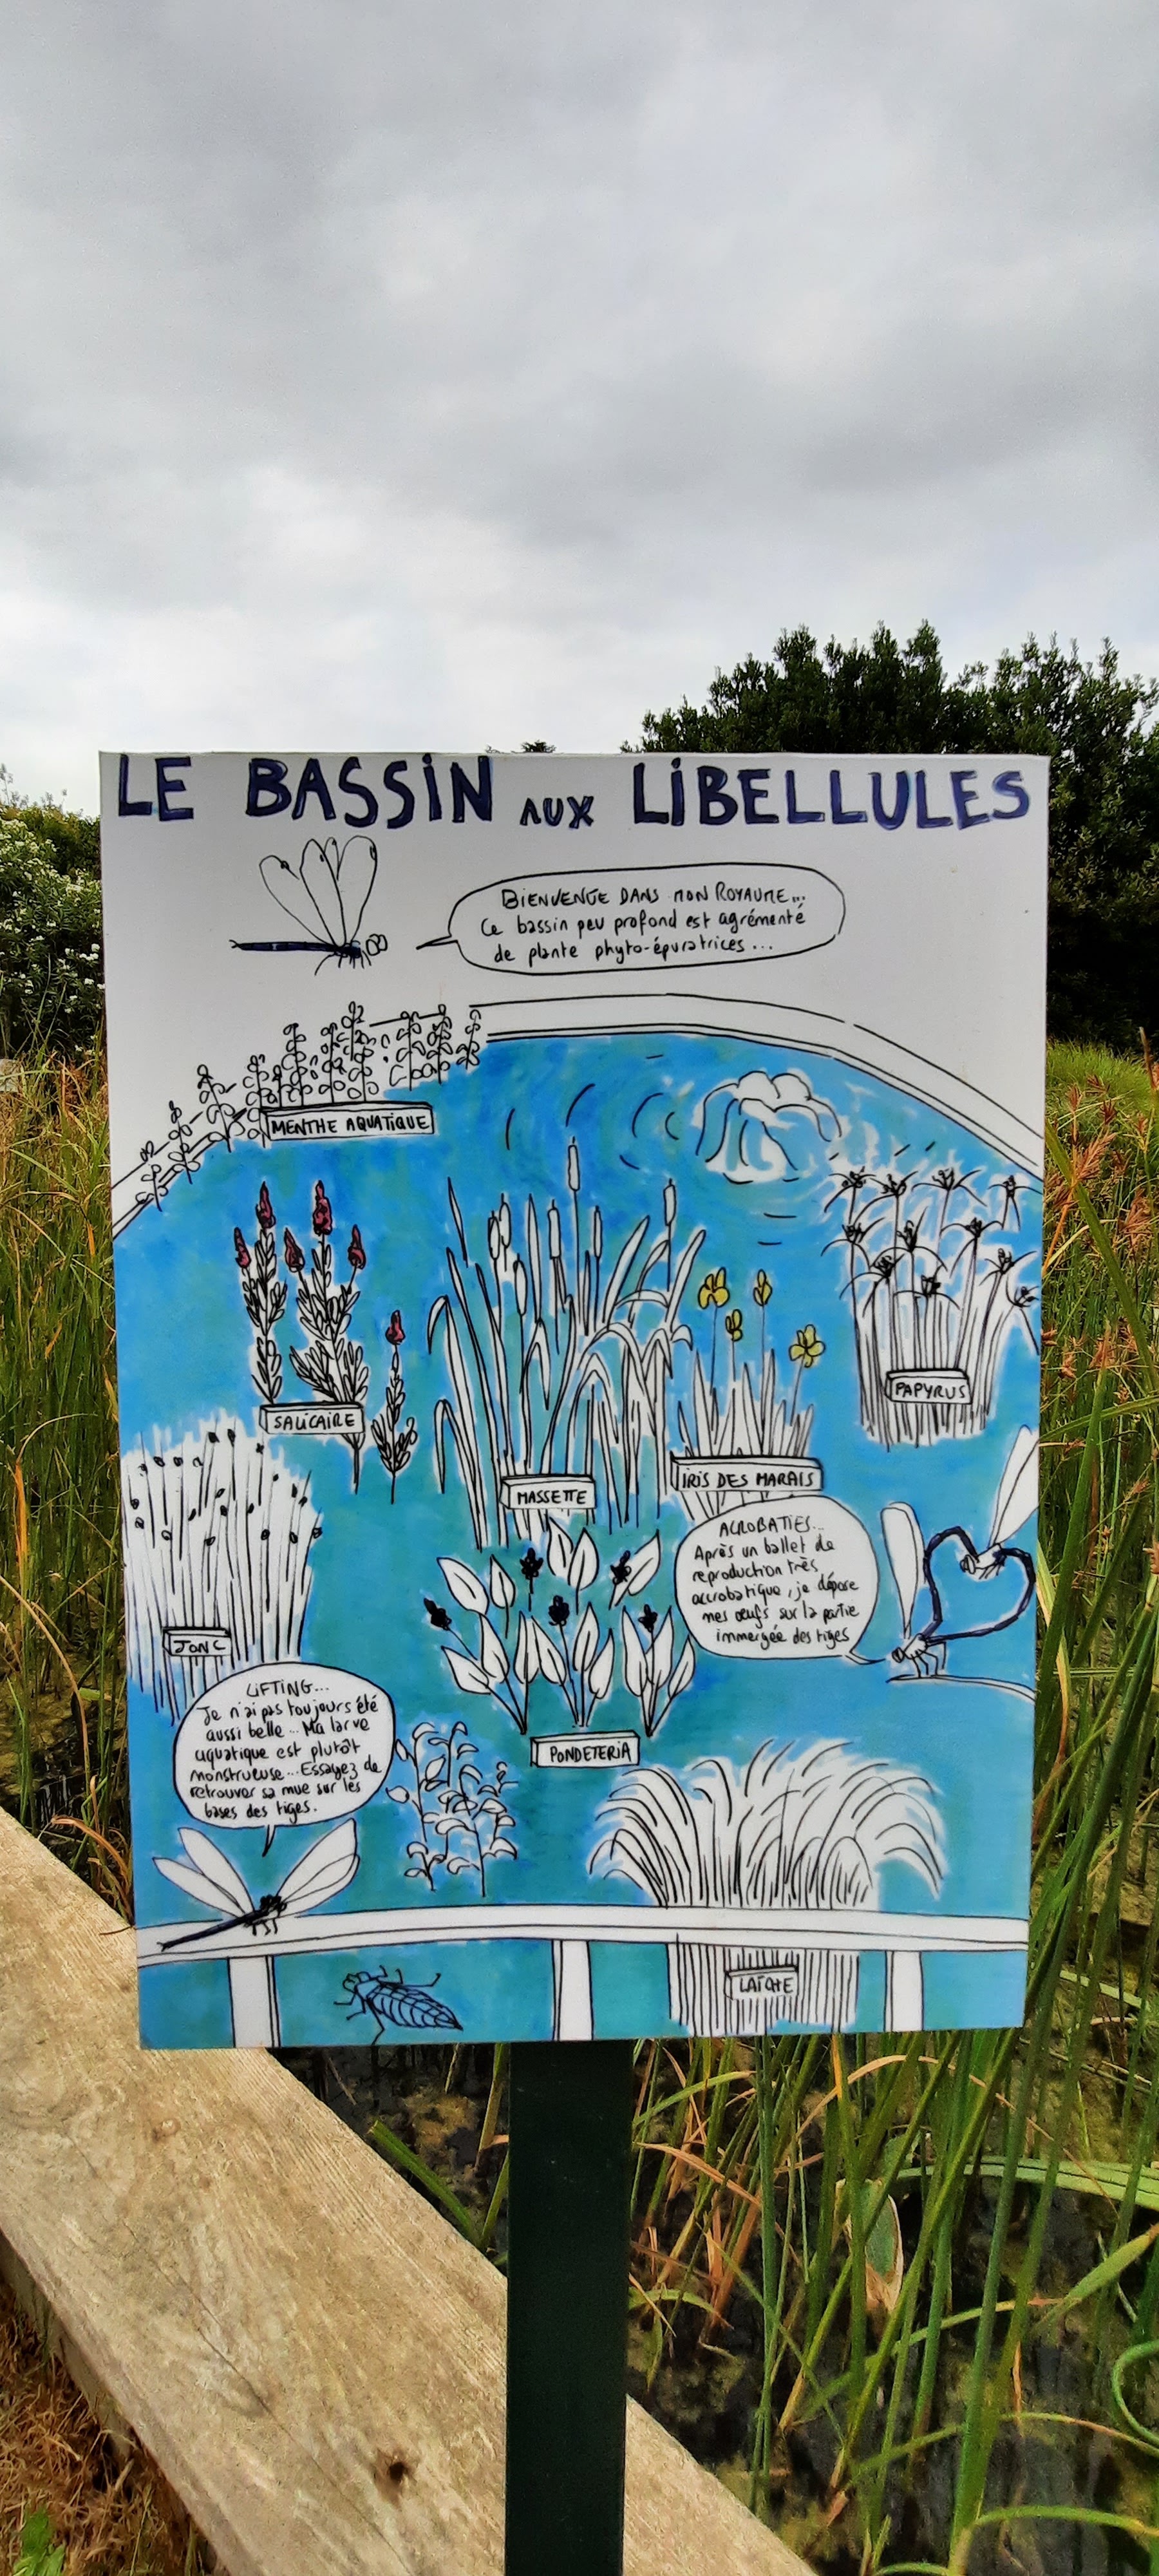 LE BASSIN AUX LIBELLULES
BIENVENUE DANS MON ROYAUME...
Ce bassin peu profond est agrémenté
de plante phyto-épuratrices...
MENTHE AQUATIQUE
SALICAIRE
PAPYRUS
MASSETTE
IRIS DES MARAIS
ACROBATIES...
Après un ballet de
reproduction très
accrobatique, je dépose
mes œufs sur la partie
immergée des tiges
JONC
LIFTING...
Je n'ai pas toujours été
aussi belle... Ma larve
aquatique est plutôt
monstrueuse... Essayez de
retrouver sa mue sur les
bases des tiges.
PONDETERIA
LAÎCHE